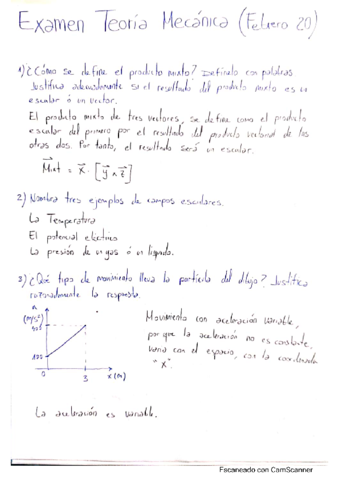 Examen Teoría Mecánica (Febrero 20)
1) ¿Cómo se define el producto mixto? Defínelo con palabras
Justifica adecuadamente si el resultado del producto mixto es un
escalar ó un vector.
El produto mixto de tres vectores, se define como el producto
escalar del primero por el resultado del producto vectorial de los
otros dos. Por tanto, el resultado será un escalar.
= x⃗ · [y⃗ ∧ z⃗]
2) Nombra tres ejemplos de campos escalares.
La Temperatura
El potencial eléctrico
La presión de un gas ó un líquido.
3) ¿Qué tipo de movimiento lleva la partícula del dibujo? Justifica
razonadamente la respuesta.
a
(m/s²)
100
3
x (m)
Movimiento con aceleración variable,
por que la aceleración no es constante,
varía con el espacio, con la coordenada
"x".
La aceleración es variable.
Escaneado con CamScanner